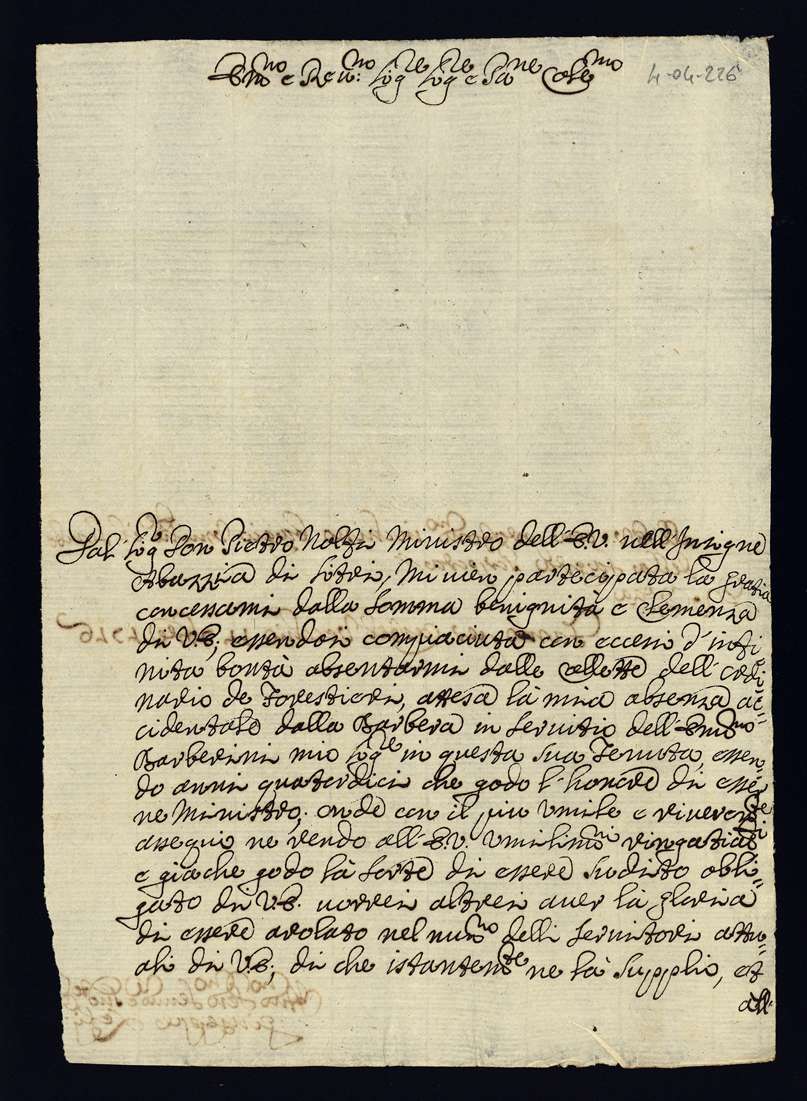 Em̃no e Reu:no Sigre Sigre e Pa͠ne Colemo
4-04-226
Dal Sigr Don Pietro Nolfi Ministro dell'E.V. nell'Insigne
Abazzia di Sitri, mi vien partecipata la gratia
concessami dalla somma benignità e Clemenza
di V.E., essendosi compiaciuta con eccessi d'infi
nita bontà absentarmi dalle Collette dell'ordi
nario de Forestieri, attesa la mia absenza ac=
cidentale dalla Barbera in servitio dell'Em̃mo
Barberini mio Sigre in questa sua Tenuta, essen
do anni quatordici che godo l'honore di esser
ne Ministro; onde con il piu Umile e riverente
ossequio ne rendo all'E.V. Umilissmi ringatiati
e giache godo la sorte di essere suddito obli=
gato di V.E. vorrei altresi aver la gloria
di essere arolato nel numro delli Servitori attu=
ali di V.E., di che istantemte ne la supplio, et
all'